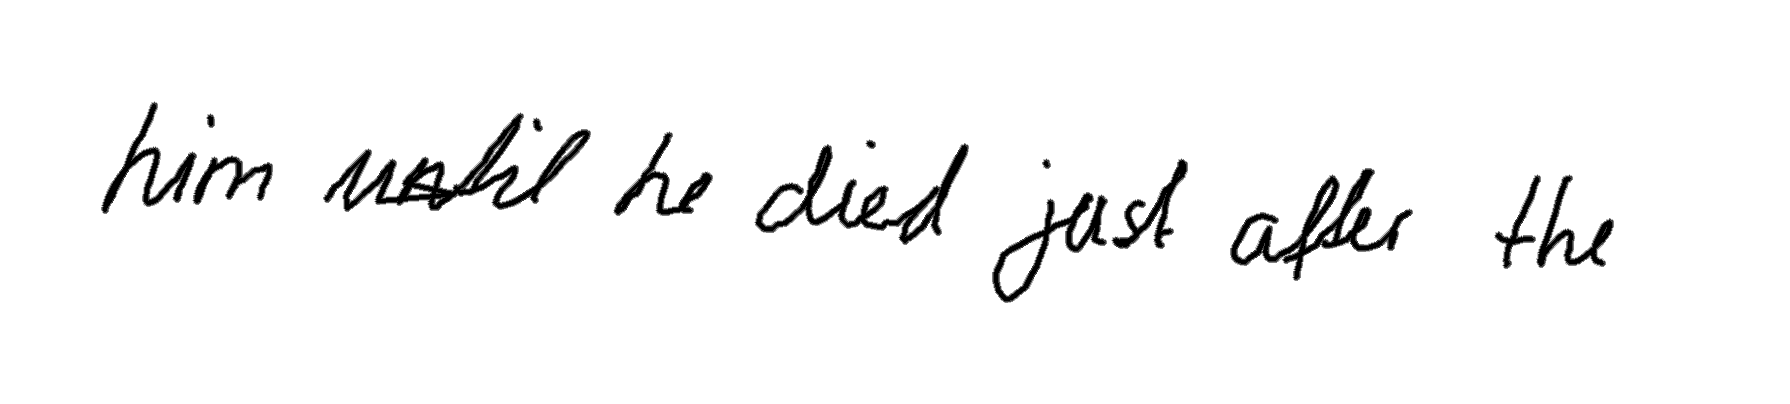 him until he died just after the